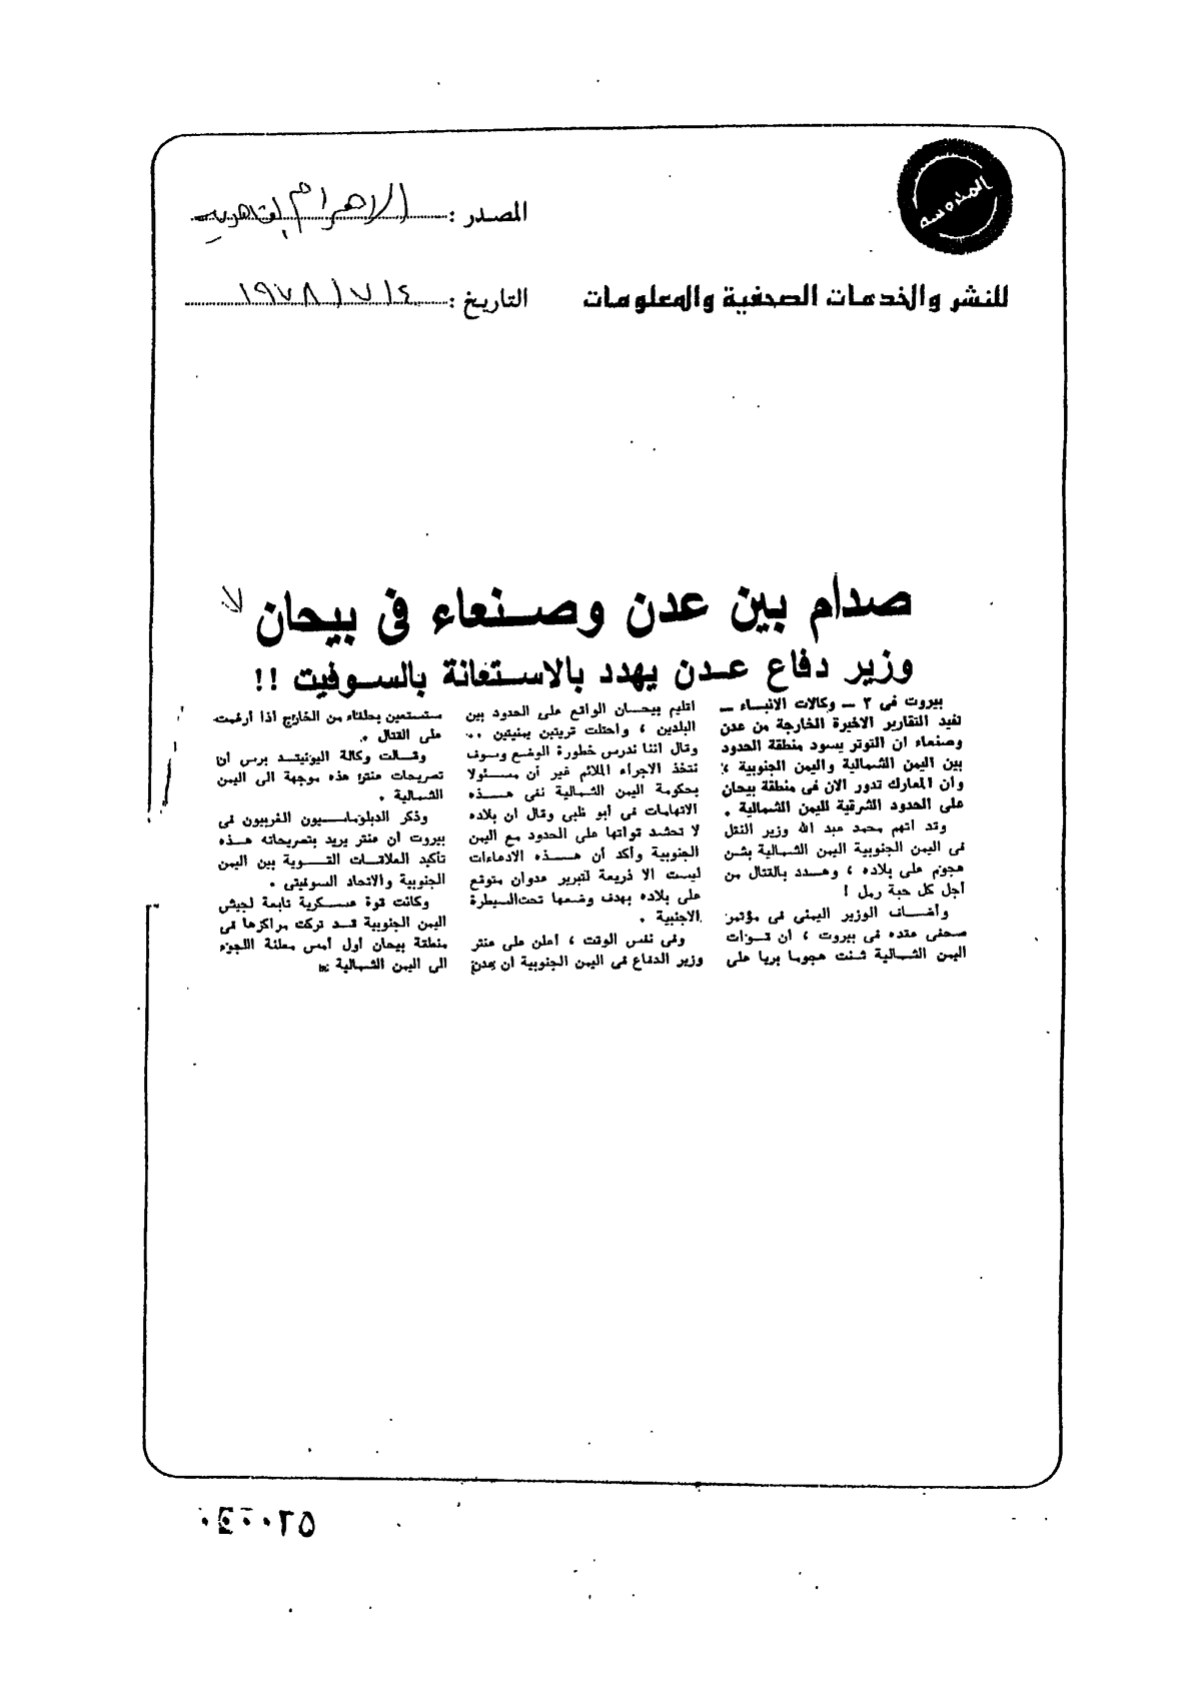 المحروسة
المصدر : الاهرام القاهرية
للنشر والخدمات الصحفية والمعلومات
التاريخ : ١٩٧٨/٧/٤
صدام بين عدن وصنعاء فى بيحان
وزير دفاع عدن يهدد بالاستعانة بالسوفيت !!
بيروت فى ٣ ــ وكالات الانباء ــ
تفيد التقارير الاخيرة الخارجة من عدن
وصنعاء ان التوتر يسود منطقة الحدود
بين اليمن الشمالية واليمن الجنوبية ،
وأن المعارك تدور الان فى منطقة بيحان
على الحدود الشرقية لليمن الشمالية .
وقد اتهم محمد عبد الله وزير النقل
فى اليمن الجنوبية اليمن الشمالية بشن
هجوم على بلاده ، وهدد بالقتال من
أجل كل حبة رمل !
وأضاف الوزير اليمنى فى مؤتمر
صحفى عقده فى بيروت ، أن قوات
اليمن الشمالية شنت هجوما بريا على
اقليم بيحان الواقع على الحدود بين
البلدين ، واحتلت قريتين يمنيتين ..
وقال اننا ندرس خطورة الوضع وسوف
نتخذ الاجراء الملائم غير أن مسئولا
بحكومة اليمن الشمالية نفى هذه
الاتهامات فى أبو ظبى وقال ان بلاده
لا تحشد قواتها على الحدود مع اليمن
الجنوبية وأكد أن هذه الادعاءات
ليست الا ذريعة لتبرير عدوان متوقع
على بلاده بهدف وضعها تحت السيطرة
الاجنبية .
وفى نفس الوقت ، أعلن على عنتر
وزير الدفاع فى اليمن الجنوبية ان عدن
ستستعين بحلفاء من الخارج اذا أرغمت
على القتال .
وقالت وكالة اليونيتد برس ان
تصريحات عنتر هذه موجهة الى اليمن
الشمالية .
وذكر الدبلوماسيون الغربيون فى
بيروت ان عنتر يريد بتصريحاته هذه
تأكيد العلاقات القوية بين اليمن
الجنوبية والاتحاد السوفيتى .
وكانت قوة عسكرية تابعة لجيش
اليمن الجنوبية قد تركت مراكزها فى
منطقة بيحان أول أمس معلنة اللجوء
الى اليمن الشمالية